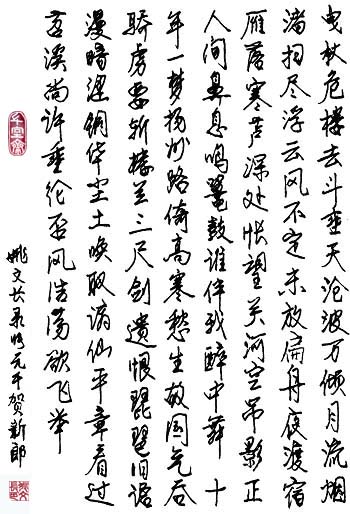 曳杖危楼去斗垂天沧波万顷月流烟
渚扫尽浮云风不定未放扁舟夜渡宿
雁落寒芦深处怅望关河空吊影正
人间鼻息鸣鼍鼓谁伴我醉中舞 十
年一梦扬州路倚高寒愁生故国气吞
骄虏要斩楼兰三尺剑遗恨琵琶旧语
漫暗涩铜华尘土唤取谪仙平章看过
苕溪尚许垂纶否风浩荡欲飞举
姚文长录张元干贺新郎